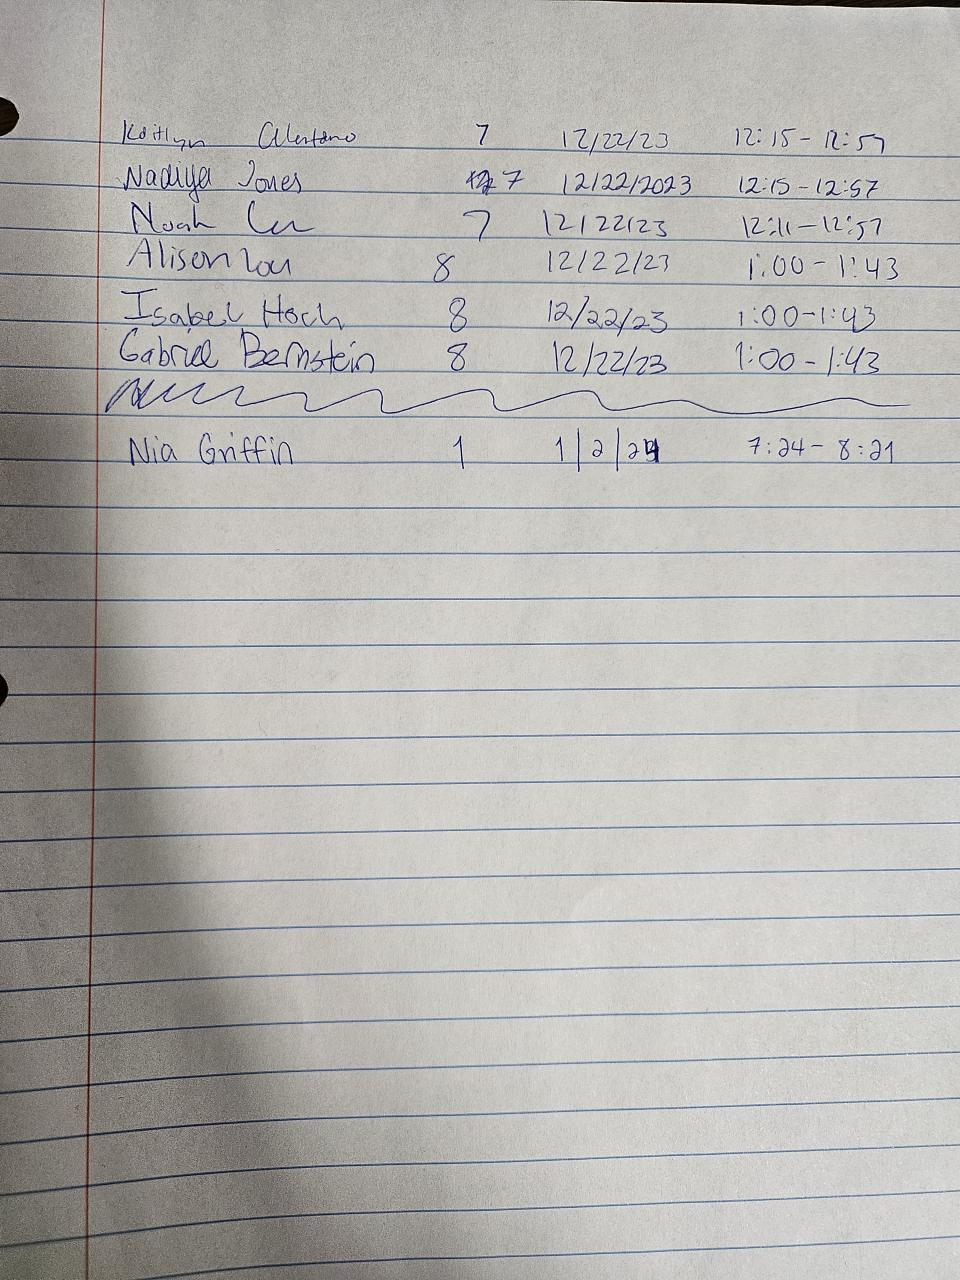 Kaitlyn 7 12/22/23 12:15-12:57
Nadiya Jones 7 12/22/2023 12:15-12:57
Noah 7 12/22/23 12:11-12:57
Alison Lou 8 12/22/23 1:00-1:43
Isabel Hoch 8 12/22/23 1:00-1:43
Gabriel Bernstein 8 12/22/23 1:00-1:43
Nia Griffin 1 1/2/24 7:24-8:21